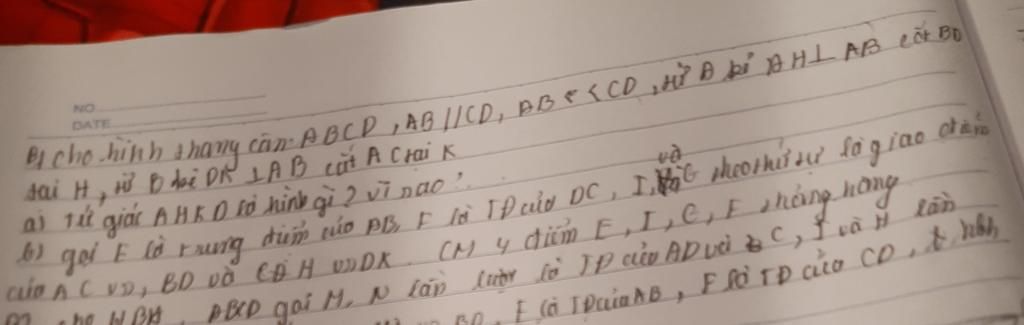 NO
DATE
B1 cho hình thang cân ABCD, AB//CD, AB < CD, từ A kẻ AH⊥AB cắt BD
tại H, từ B kẻ DK ⊥ AB cắt AC tại K
a) Tứ giác AHKD là hình gì? vì nao?
b) gọi E là trung điểm của AB, F là TĐ của DC, I, và G theo thứ tự là giao điểm
của AC và, BD và H và DK. CM 4 điểm E, I, G, F thẳng hàng
cho ABCD gọi M, N lần lượt là TĐ của AD và C, I và H lần
BD, E là TĐ của AB, F là TĐ của CD,